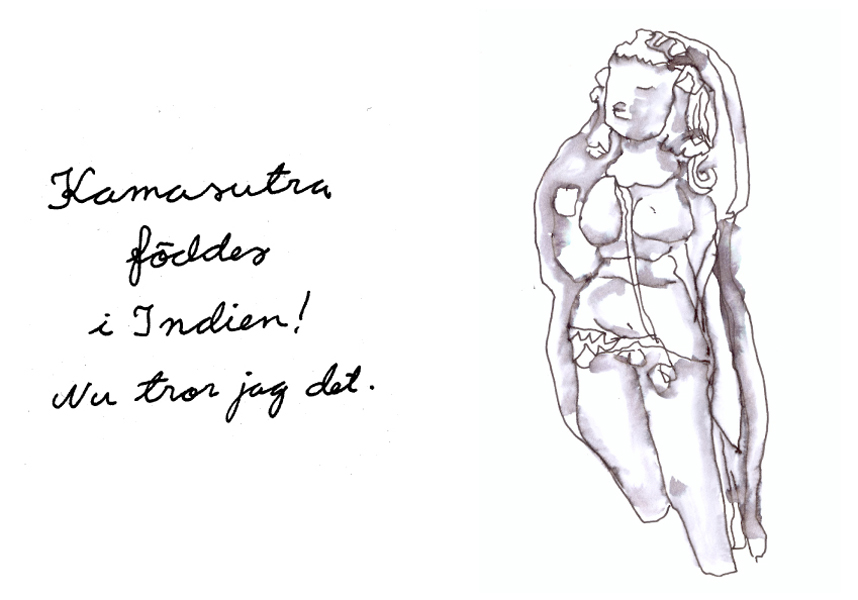 Kamasutra
föddes
i Indien!
Nu tror jag det.